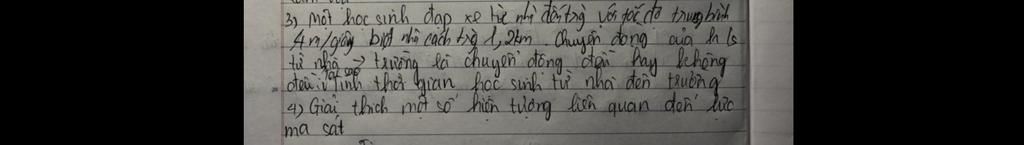 3) Một học sinh đạp xe từ nhà đến trg với tốc độ trung bình
4m/giây biết nhà cách trg 1,2km Chuyển động của hs
từ nhà → trường là chuyển động đều hay không
đều? Vì sao Tính thời gian học sinh từ nhà đến trường
4) Giải thích một số hiện tượng liên quan đến lực
ma sát